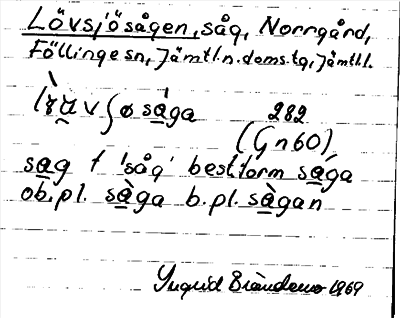 Lövsjösågen, såg, Norrgård,
Föllinge sn, Jämtl.n.doms.tg, Jämtl.l.
282
(Gn60)
sag f 'såg' best form sàga
ob.pl. sàga b.pl. sàgan
Yngrid 1969